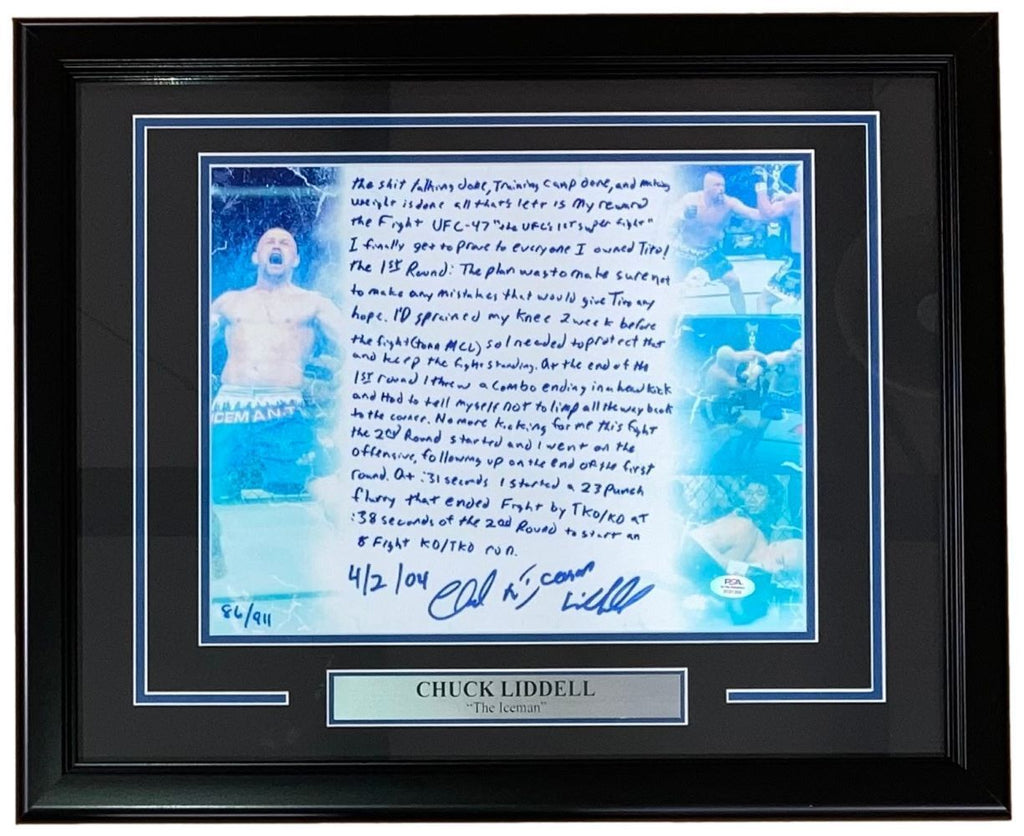 the shit talking done, Training camp done, and making
weight is done all that's left is my reward
the Fight UFC-47 "the UFC's 1st super fight"
I finally get to prove to everyone I owned Tito!
the 1st Round: The plan was to make sure not
to make any mistakes that would give Tito any
hope. I'D sprained my knee 2 week before
the fight (torn MCL) so I needed to protect that
and keep the fight standing. At the end of the
1st round I threw a combo ending in a head kick
and Had to tell myself not to limp all the way back
to the corner. No more kicking for me this fight
the 2nd Round started and I went on the
offensive, following up on the end of the first
round. At :31 seconds I started a 23 punch
flurry that ended Fight by TKO/KO at
:38 seconds of the 2nd Round to start an
8 Fight KO/TKO run.
4/2/04
Iceman
86/911
ICEMAN.T
PSA
CHUCK LIDDELL
"The Iceman"